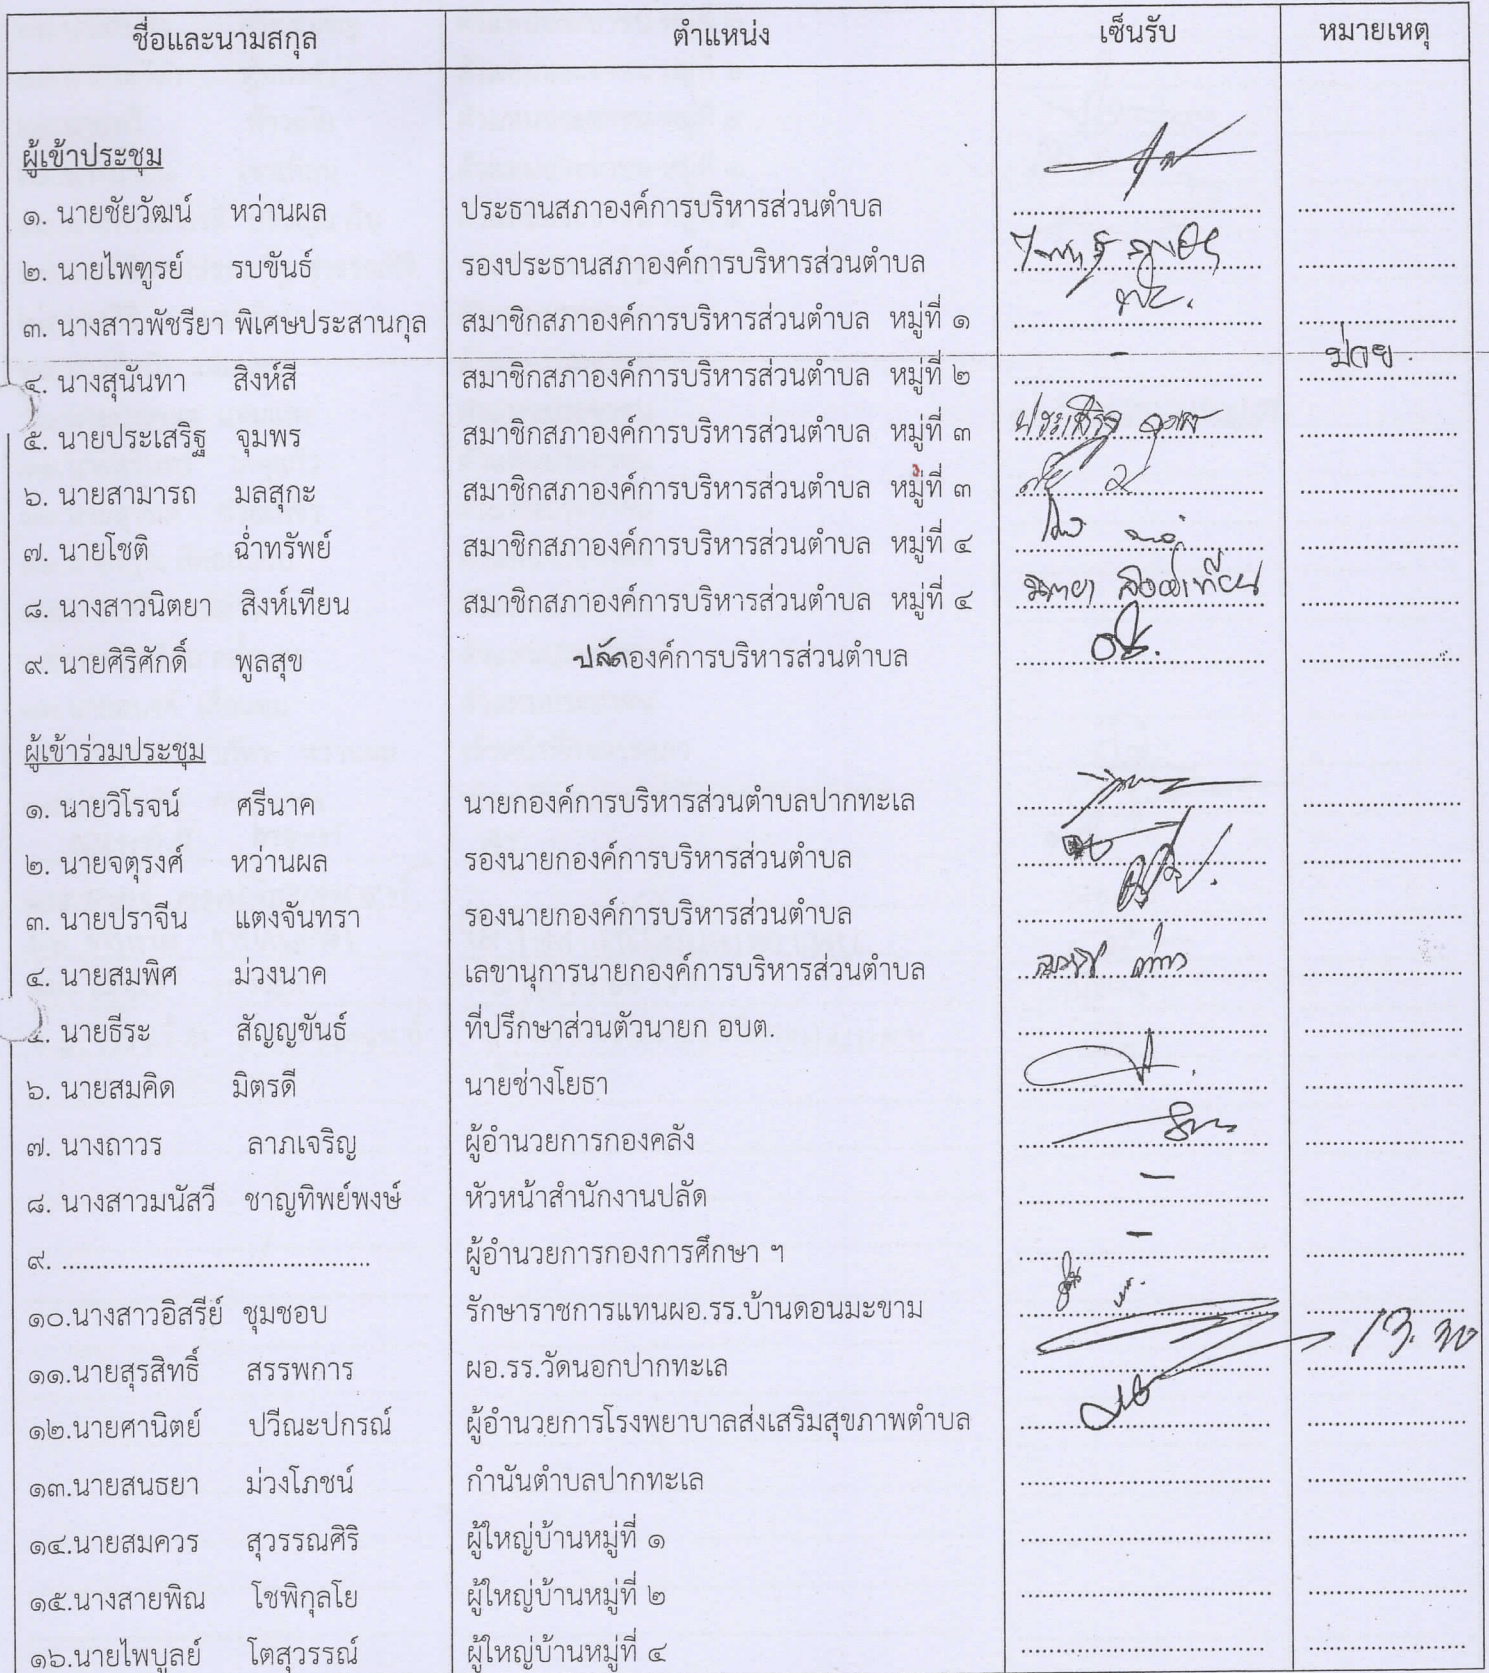 ชื่อและนามสกุล ตำแหน่ง เซ็นรับ หมายเหตุ
ผู้เข้าประชุม
๑. นายชัยวัฒน์ หว่านผล ประธานสภาองค์การบริหารส่วนตำบล
๒. นายไพฑูรย์ รบขันธ์ รองประธานสภาองค์การบริหารส่วนตำบล
๓. นางสาวพัชรียา พิเศษประสานกุล สมาชิกสภาองค์การบริหารส่วนตำบล หมู่ที่ ๑
๔. นางสุนันทา สิงห์สี สมาชิกสภาองค์การบริหารส่วนตำบล หมู่ที่ ๒ - ป่วย
๕. นายประเสริฐ จุมพร สมาชิกสภาองค์การบริหารส่วนตำบล หมู่ที่ ๓ ประเสริฐ จุมพร
๖. นายสามารถ มลสุกะ สมาชิกสภาองค์การบริหารส่วนตำบล หมู่ที่ ๓
๗. นายโชติ ฉ่ำทรัพย์ สมาชิกสภาองค์การบริหารส่วนตำบล หมู่ที่ ๔
๘. นางสาวนิตยา สิงห์เทียน สมาชิกสภาองค์การบริหารส่วนตำบล หมู่ที่ ๔ นิตยา สิงห์เทียน
๙. นายศิริศักดิ์ พูลสุข ปลัดองค์การบริหารส่วนตำบล
ผู้เข้าร่วมประชุม
๑. นายวิโรจน์ ศรีนาค นายกองค์การบริหารส่วนตำบลปากทะเล
๒. นายจตุรงศ์ หว่านผล รองนายกองค์การบริหารส่วนตำบล
๓. นายปราจีน แตงจันทรา รองนายกองค์การบริหารส่วนตำบล
๔. นายสมพิศ ม่วงนาค เลขานุการนายกองค์การบริหารส่วนตำบล
๕. นายธีระ สัญญขันธ์ ที่ปรึกษาส่วนตัวนายก อบต.
๖. นายสมคิด มิตรดี นายช่างโยธา
๗. นางถาวร ลาภเจริญ ผู้อำนวยการกองคลัง
๘. นางสาวมนัสวี ชาญทิพย์พงษ์ หัวหน้าสำนักงานปลัด -
๙. ............................................ ผู้อำนวยการกองการศึกษา ฯ -
๑๐.นางสาวอิสรีย์ ชุมชอบ รักษาราชการแทนผอ.รร.บ้านดอนมะขาม
๑๑.นายสุรสิทธิ์ สรรพการ ผอ.รร.วัดนอกปากทะเล 13.30
๑๒.นายศานิตย์ ปวีณะปกรณ์ ผู้อำนวยการโรงพยาบาลส่งเสริมสุขภาพตำบล
๑๓.นายสนธยา ม่วงโภชน์ กำนันตำบลปากทะเล
๑๔.นายสมควร สุวรรณศิริ ผู้ใหญ่บ้านหมู่ที่ ๑
๑๕.นางสายพิณ โชพิกุลโย ผู้ใหญ่บ้านหมู่ที่ ๒
๑๖.นายไพบูลย์ โตสุวรรณ์ ผู้ใหญ่บ้านหมู่ที่ ๔